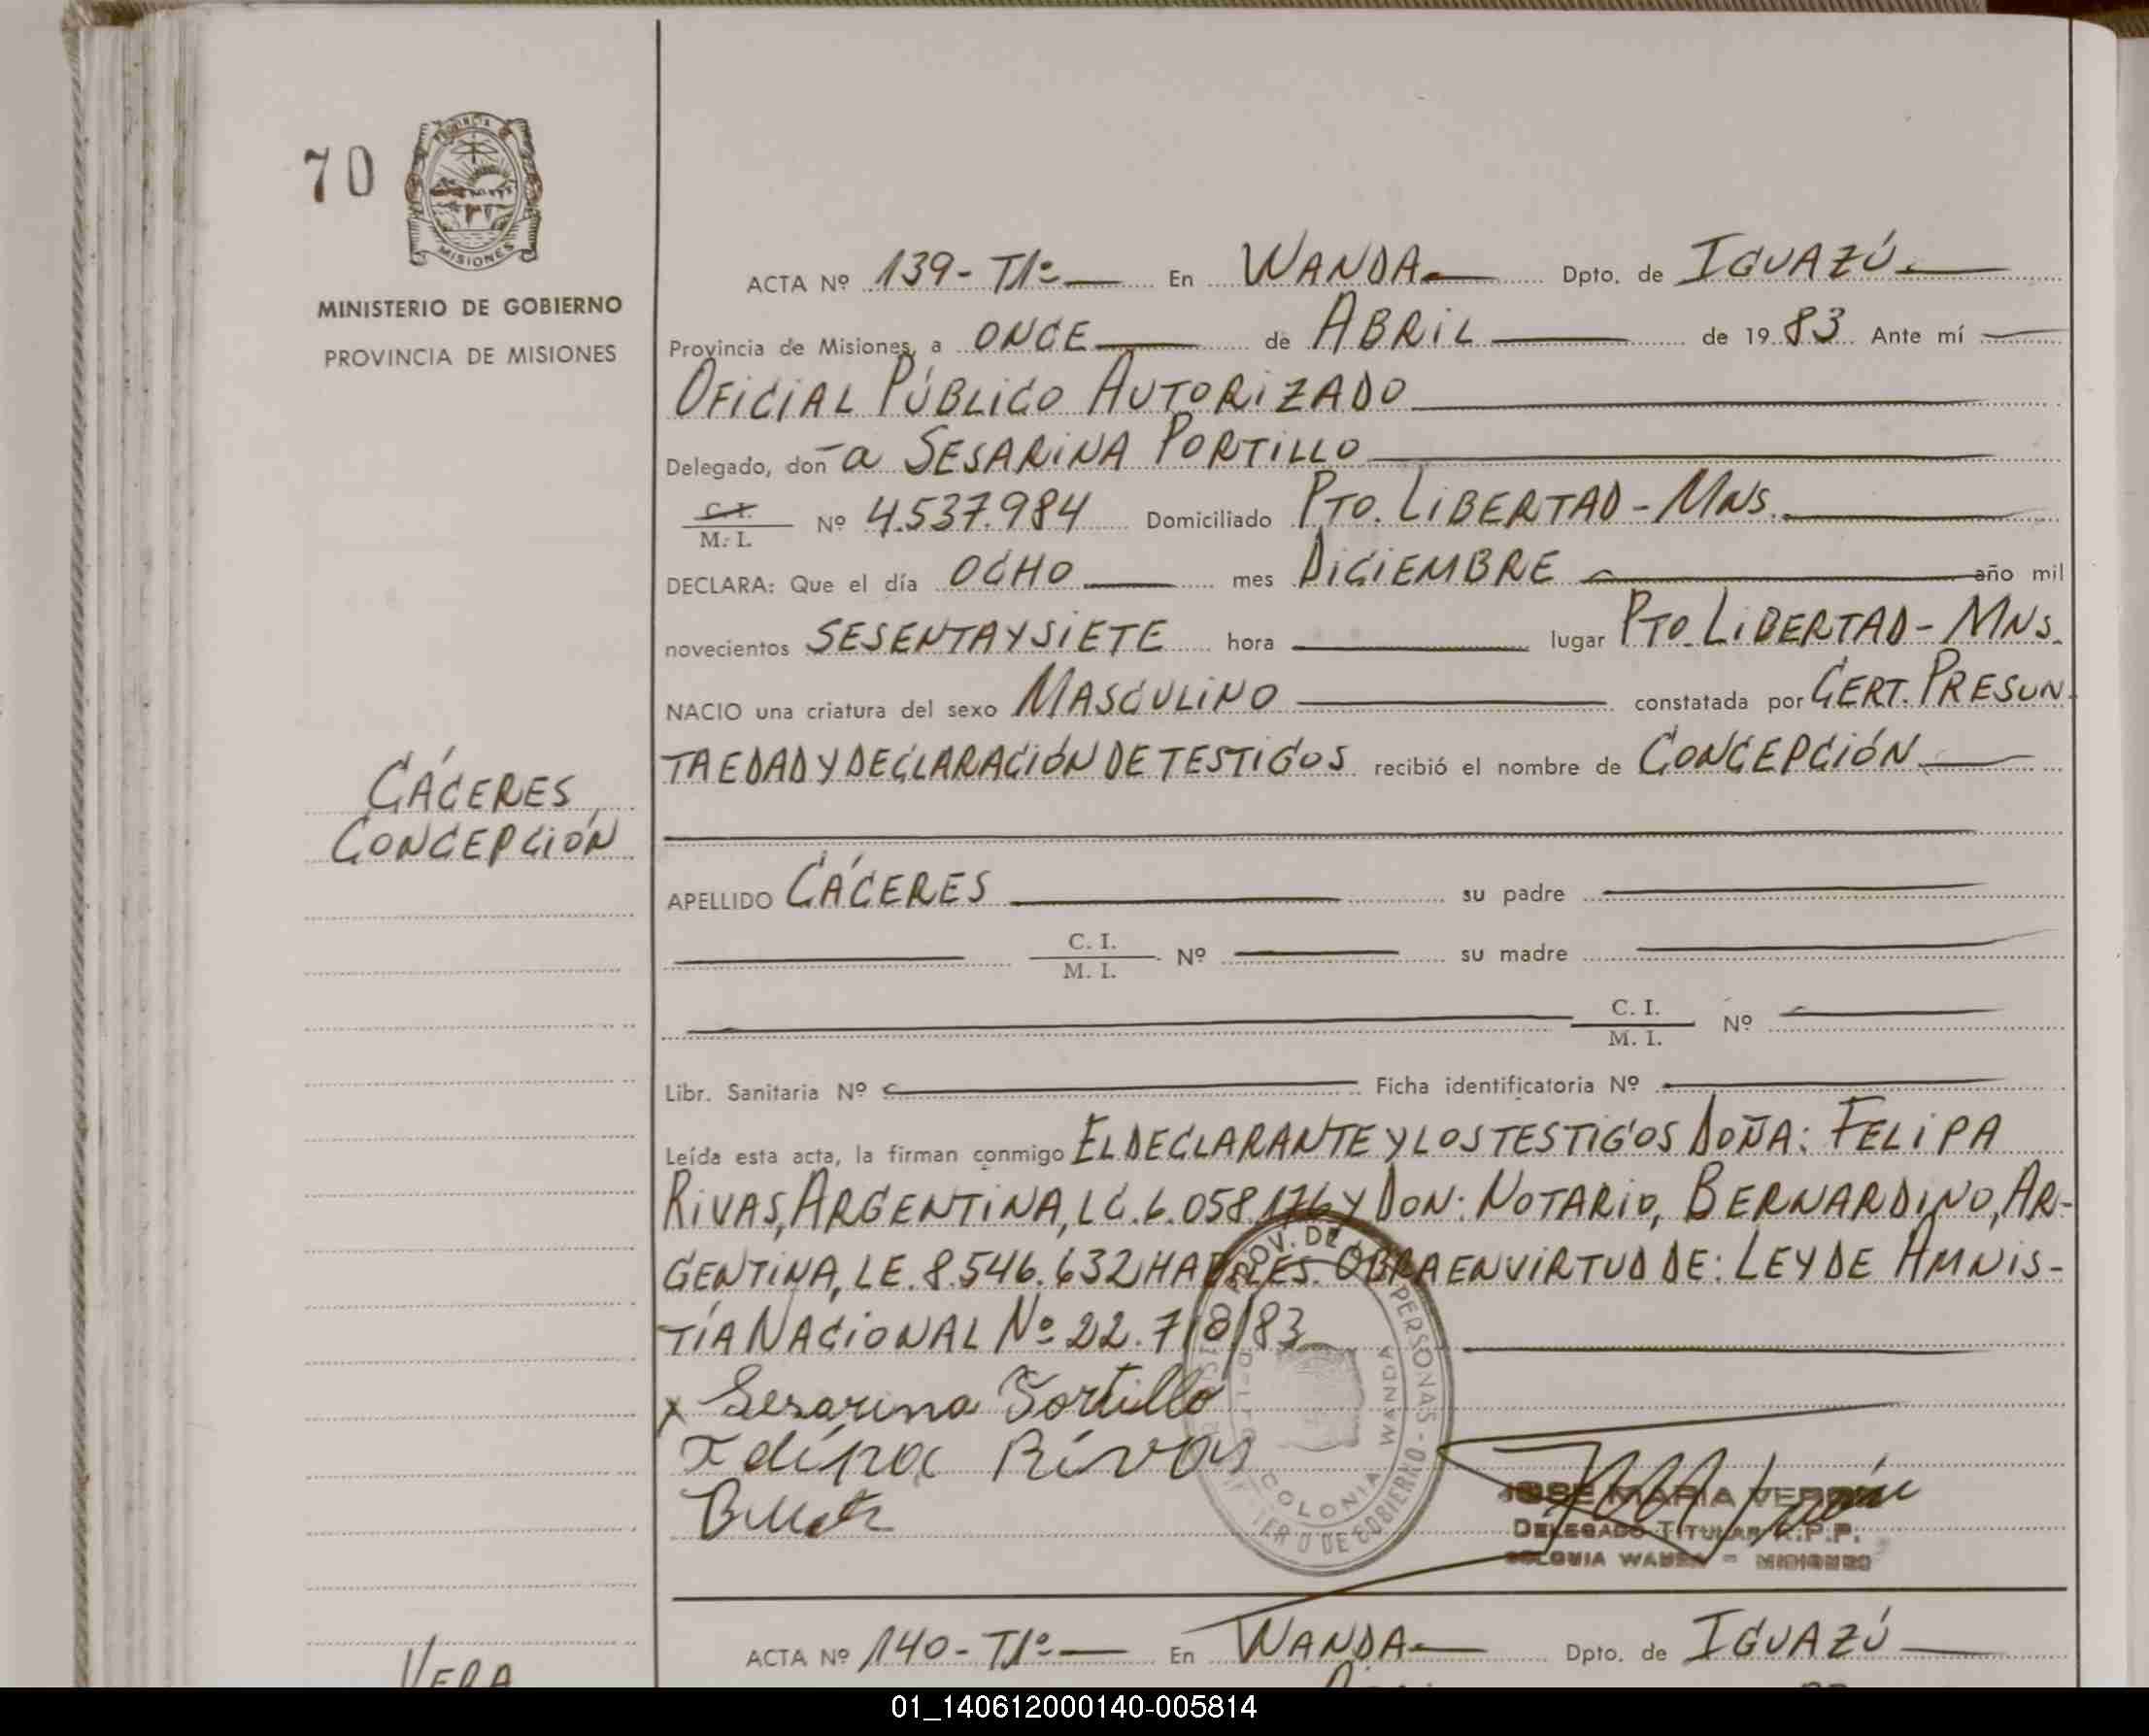 70
PROVINCIA DE
MISIONES
MINISTERIO DE GOBIERNO
PROVINCIA DE MISIONES
CÁCERES,
CONCEPCIÓN
ACTA Nº 139-T1º En WANDA Dpto. de IGUAZÚ
Provincia de Misiones, a ONCE de ABRIL de 1983 Ante mí
OFICIAL PÚBLICO AUTORIZADO
Delegado, don-a SESARINA PORTILLO
C. I.
M. I. Nº 4.537.984 Domiciliado PTO. LIBERTAD-MNS.
DECLARA: Que el día OCHO mes DICIEMBRE año mil
novecientos SESENTA Y SIETE hora lugar PTO. LIBERTAD-MNS.
NACIO una criatura del sexo MASCULINO constatada por CERT. PRESUN-
TA EDAD Y DECLARACIÓN DE TESTIGOS recibió el nombre de CONCEPCIÓN
APELLIDO CÁCERES su padre
C. I.
M. I. Nº su madre
C. I.
M. I. Nº
Libr. Sanitaria Nº Ficha identificatoria Nº
Leída esta acta, la firman conmigo EL DECLARANTE Y LOS TESTIGOS DOÑA: FELIPA
RIVAS, ARGENTINA, LC. 6.058.176 Y DON: NOTARIO, BERNARDINO, AR-
GENTINA, LE. 8.546.632 HABILES. OBRA EN VIRTUD DE: LEY DE AMNIS-
TÍA NACIONAL Nº 22.718/83
x Sesarina Portillo
Felipa Rivas
PROV. DE PERSONAS - WANDA COLONIA DE GOBIERNO
JOSE MARIA
DELEGADO TITULAR R.P.P.
COLONIA WANDA - MISIONES
ACTA Nº 140-T1º En WANDA Dpto. de IGUAZÚ
VERA
01_140612000140-005814